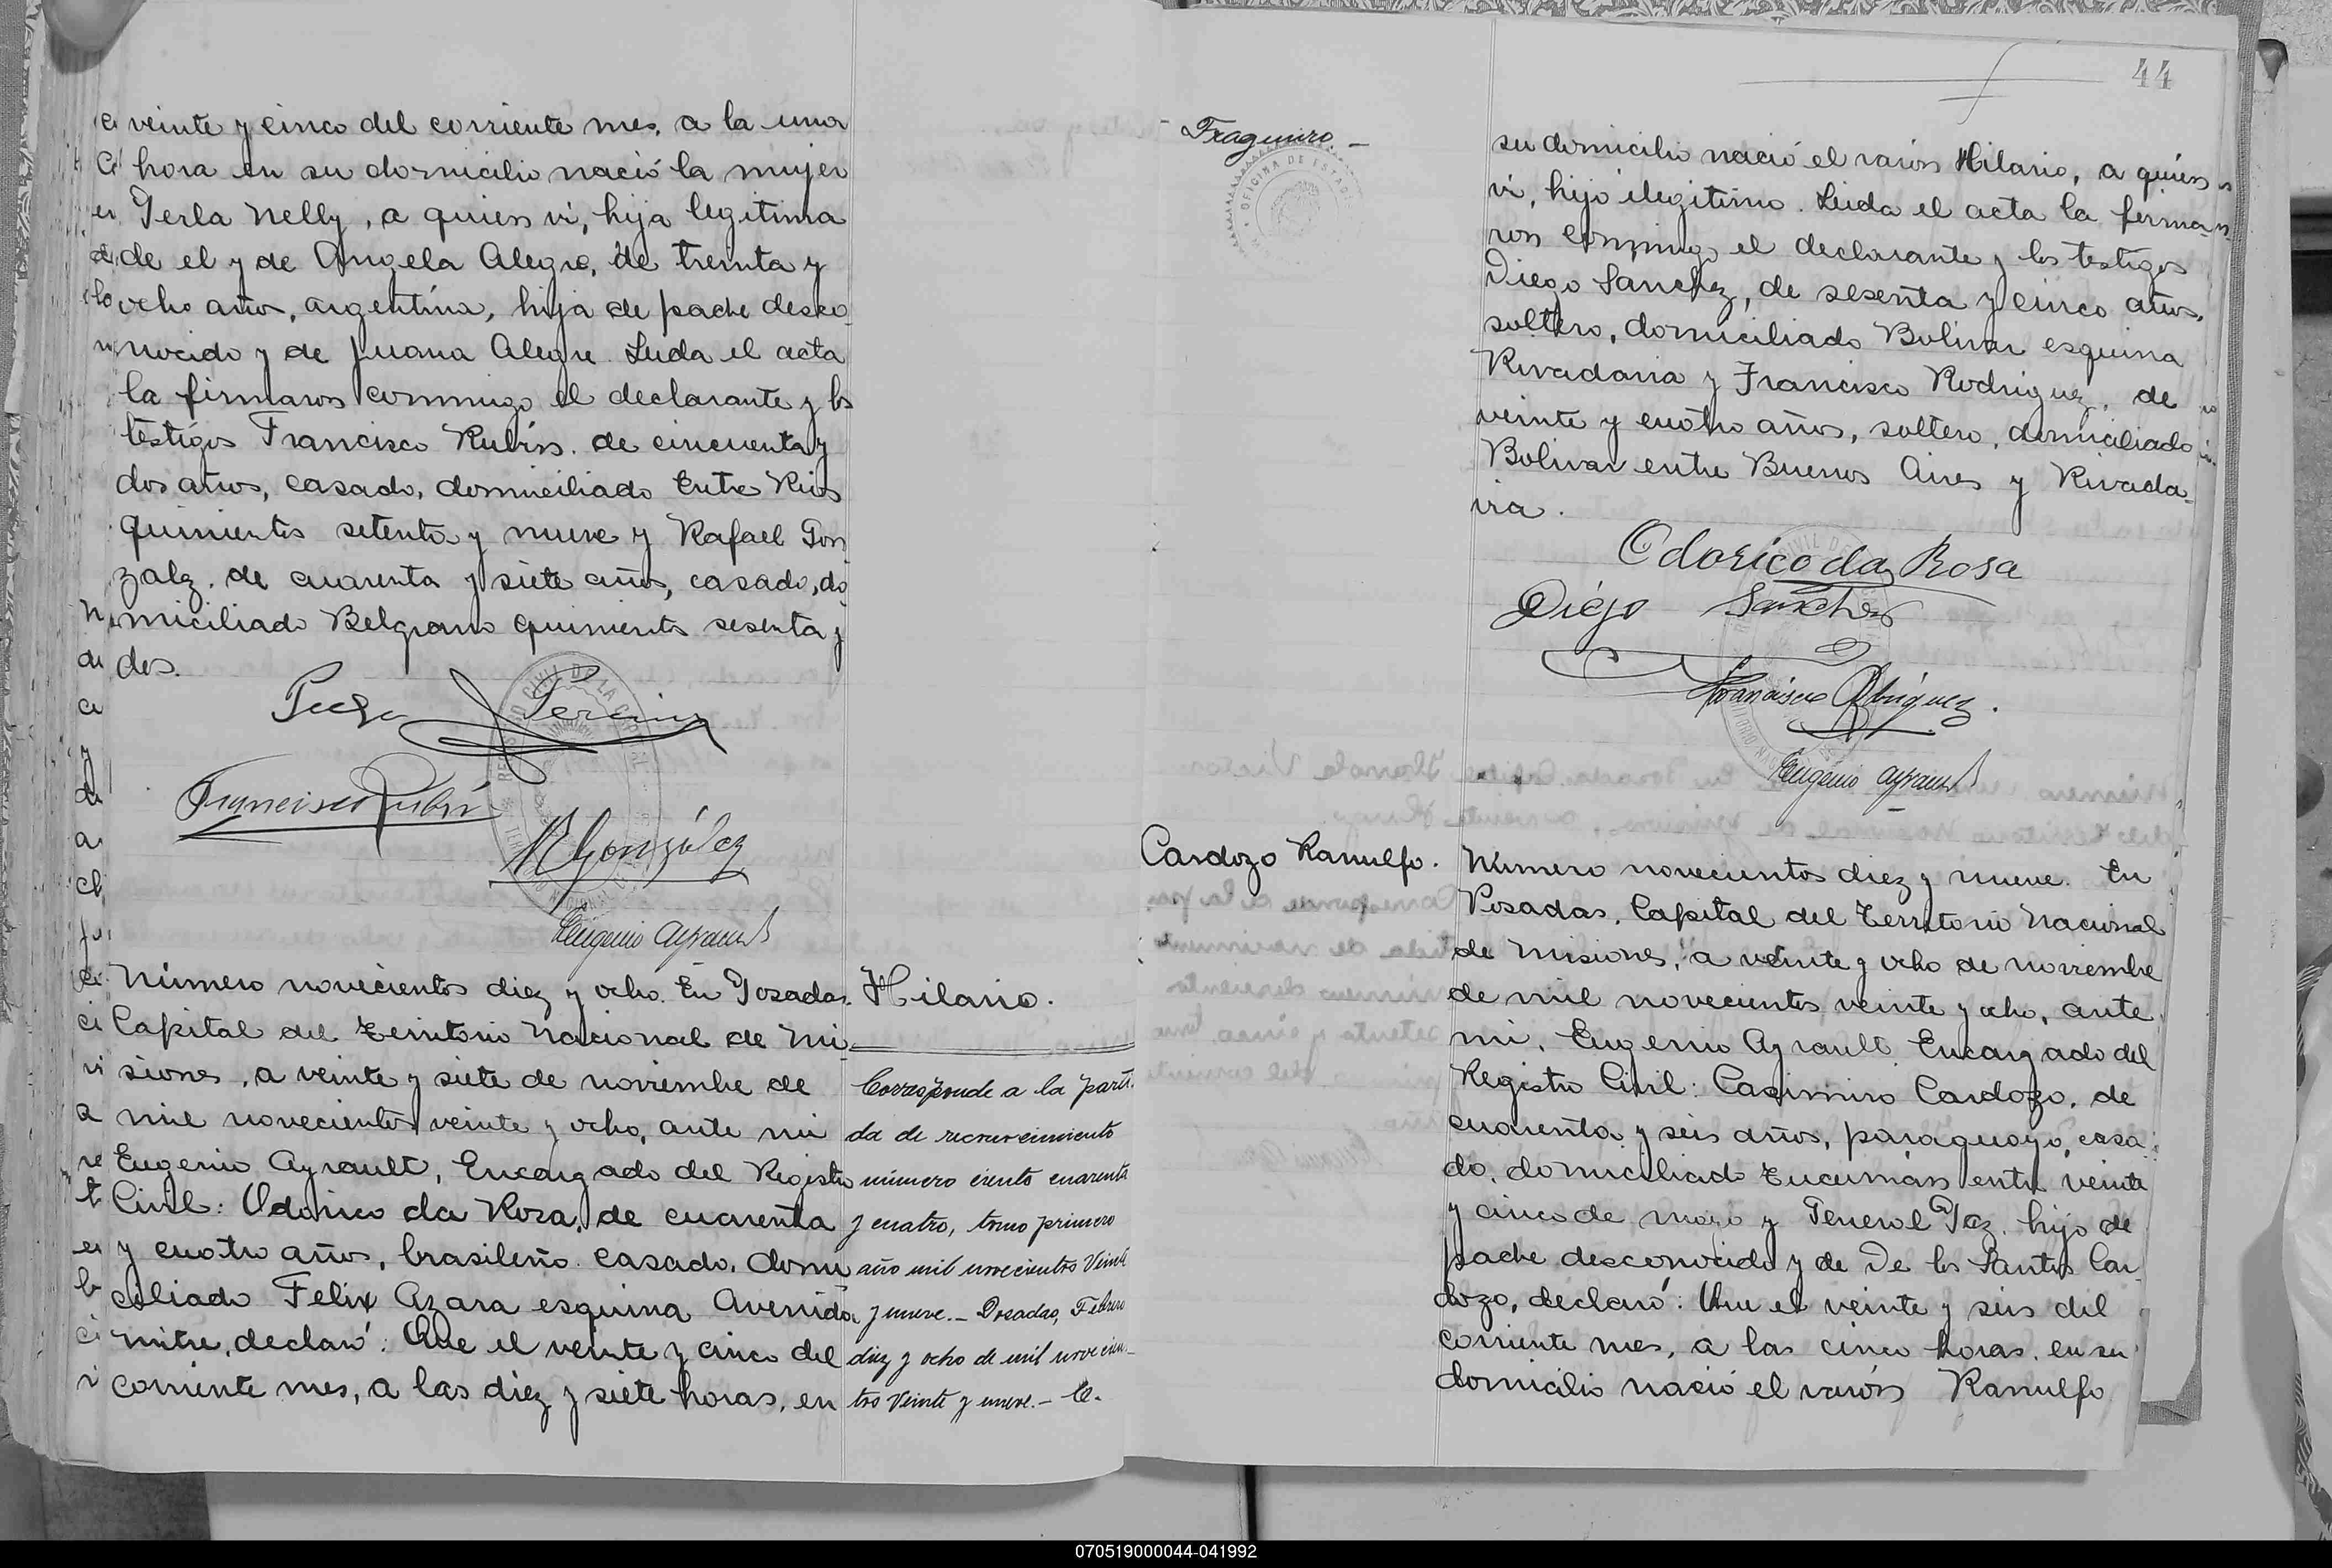 veinte y cinco del corriente mes, a la una
hora en su domicilio nació la mujer
Perla Nelly, a quien vi, hija legitima
de el y de Angela Alegre, de treinta y
ocho años, argentina, hija de padre desco-
nocido y de Juana Alegre. Leida el acta
la firmaron conmigo el declarante y los
testigos Francisco Rubin, de cincuenta y
dos años, casado, domiciliado Entre Rios
quinientos setenta y nueve y Rafael Gon
zalez, de cuarenta y siete años, casado, do
miciliado Belgrano quinientos sesenta y
dos.
Francisco Rubin
R Gonzálea
Eugenio Ayrault
Número novecientos diez y ocho. En Posadas.
Capital del Territorio Nacional de Mi-
siones, a veinte y siete de noviembre de
mil novecientos veinte y ocho, ante mi
Eugenio Ayrault, Encargado del Registro
Civil: Odorico da Rosa, de cuarenta
y cuatro años, brasileño, casado, domi
ciliado Felix Azara esquina Avenida
Mitre, declaró: Que el veinte y cinco del
corriente mes, a las diez y siete horas, en
Hilario.
Corresponde a la parti-
da de reconocimiento
número ciento cuarenta
y cuatro, tomo primero
año mil novecientos veinte
y nueve.- Posadas, Febrero
diez y ocho de mil novecien-
tos veinte y nueve.-
44
Fragueiro.-
OFICINA DE ESTAD
su domicilio nació el varón Hilario, a quien
vi, hijo ilegitimo. Leida el acta la firma-
ron conmigo el declarante y los testigos
Diego Sanchez, de sesenta y cinco años,
soltero, domiciliado Bolivar esquina
Rivadavia y Francisco Rodriguez, de
veinte y cuatro años, soltero, domiciliado
Bolivar entre Buenos Aires y Rivada-
via.
Odorico da Rosa
Diégo Sanchez
Francisco Rodriguez.
Eugenio Ayrault
Cardozo Ranulfo.
Número novecientos diez y nueve. En
Posadas, Capital del Territorio Nacional
de Misiones, a veinte y ocho de noviembre
de mil novecientos veinte y ocho, ante
mi, Eugenio Ayrault Encargado del
Registro Civil: Casimiro Cardozo, de
cuarenta y seis años, paraguayo, casa-
do, domiciliado Tucumán entre veinte
y cinco de mayo y General Paz, hijo de
padre desconocido y de De los Santos Car-
dozo, declaró: Que el veinte y seis del
corriente mes, a las cinco horas, en su
domicilio nació el varón Ranulfo
070519000044-041992